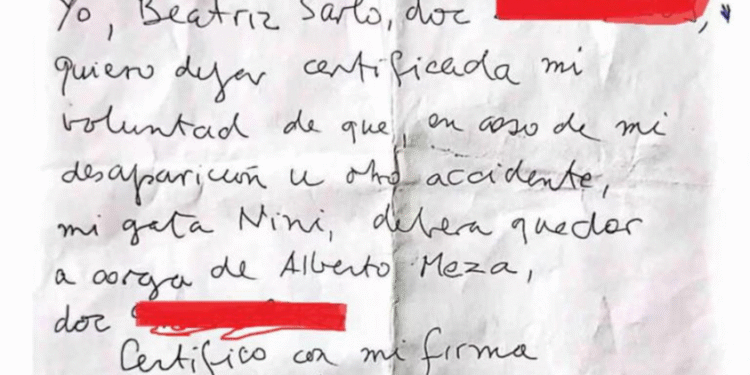 Yo, Beatriz Sarlo, doc ,
quiero dejar certificada mi
voluntad de que, en caso de mi
desaparición u otro accidente,
mi gata Nini, deberá quedar
a cargo de Alberto Meza,
doc
Certifico con mi firma